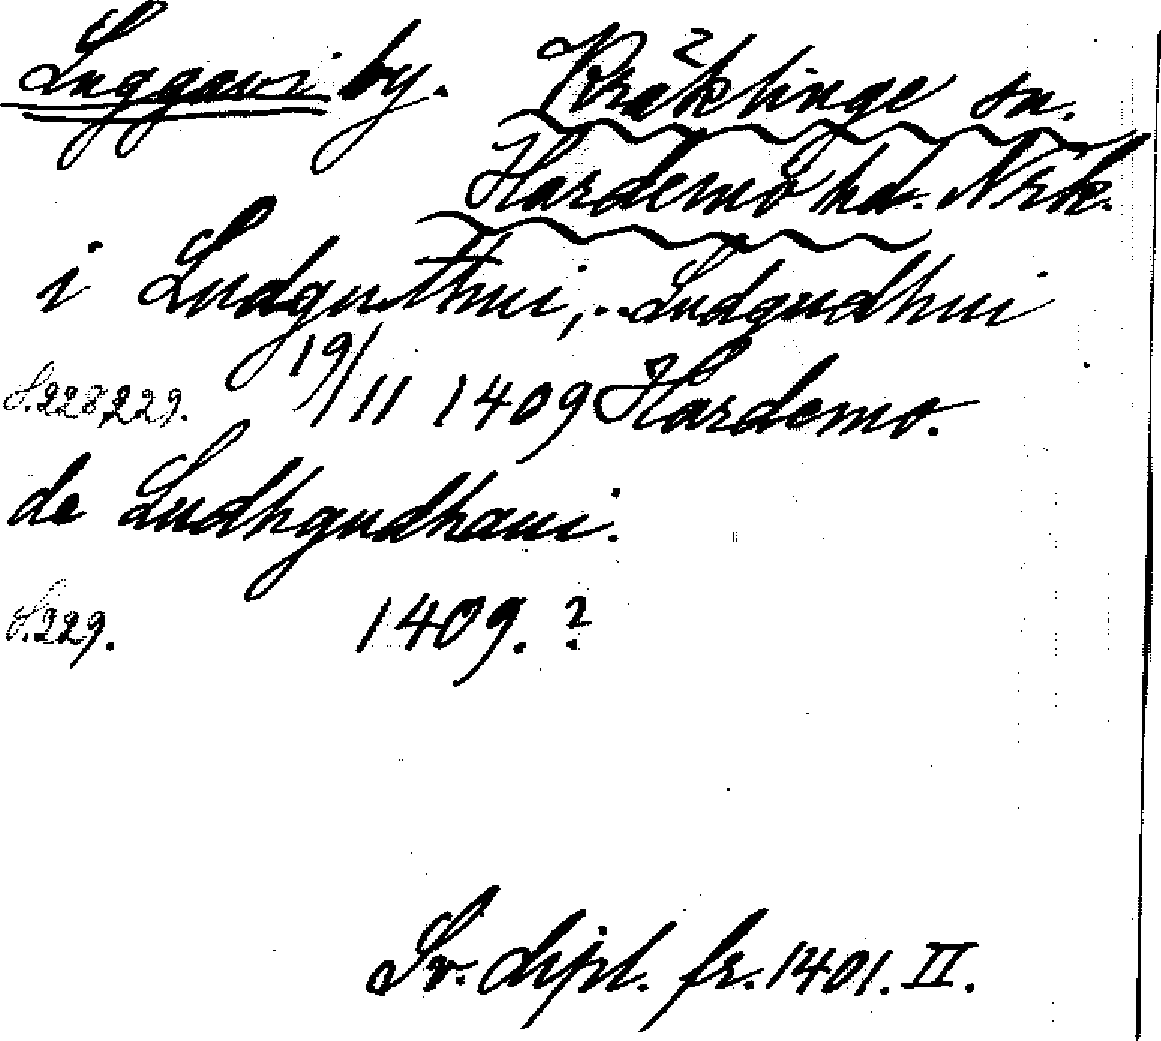 Luggavi by. Kräklinge sn.
Hardemo hd. Nrk.
i Ludguthui, .. Ludgudhui
S. 228, 229. 19/11 1409 Hardemo.
de Ludhgudhaui.
S. 229. 1409. ?
Sv. dipl. fr. 1401. II.